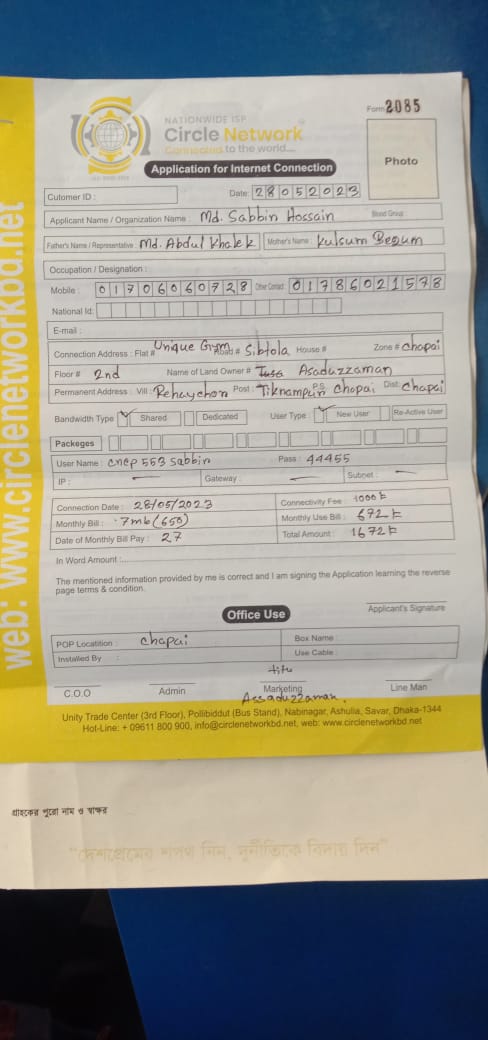 Form 2085
NATIONWIDE ISP
Circle Network
Connected to the world....
Application for Internet Connection
Photo
Cutomer ID :
Date: 28052023
Applicant Name / Organization Name : Md. Sabbin Hossain Blood Group
Father's Name / Representative : Md. Abdul Khalek Mother's Name : Kulsum Begum
Occupation / Designation :
Mobile : 01706060728 Other Contact : 01786021578
National Id:
E-mail :
Connection Address : Flat # Unique Gym Road # Sibtola House # Zone # Chapai
Floor # 2nd Name of Land Owner # Asaduzzaman
Permanent Address : Vill : Rehaychor Post : P.S Chapai Dist: Chapai
Bandwidth Type Shared Dedicated User Type : New User Re-Active User
Packeges
User Name : cnep 553 sabbin Pass : 44455
IP : — Gateway : — Subnet : —
Connection Date : 28/05/2023 Connectivity Fee : 1000 ৳
Monthly Bill : 7mb (650) Monthly Use Bill : 672 ৳
Date of Monthly Bill Pay : 27 Total Amount : 1672 ৳
In Word Amount :
The mentioned information provided by me is correct and I am signing the Application learning the reverse
page terms & condition.
Applicant's Signature
Office Use
POP Locatition : chapai Box Name :
Installed By : Use Cable :
titu
C.O.O Admin Marketing Line Man
Assaduzzaman.
Unity Trade Center (3rd Floor), Pollibiddut (Bus Stand), Nabinagar, Ashulia, Savar, Dhaka-1344
Hot-Line: + 09611 800 900, info@circlenetworkbd.net, web: www.circlenetworkbd.net
web: www.circlenetworkbd.net
গ্রাহকের পুরো নাম ও স্বাক্ষর
"দেশপ্রেমের শপথ নিন, দুর্নীতিকে বিদায় দিন"